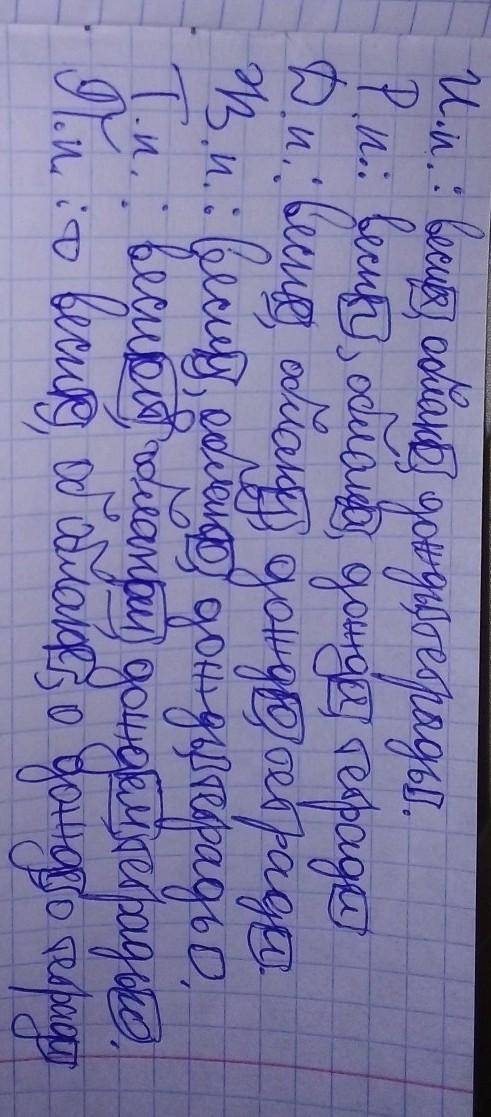 И.п.: весна, облако, дождь, тетрадь.
Р.п.: весны, облака, дождя, тетради
Д.п.: весне, облаку, дождю, тетради.
В.п.: весну, облако, дождь, тетрадь.
Т.п.: весной, облаком, дождём, тетрадью.
П.п.: о весне, об облаке, о дожде, о тетради